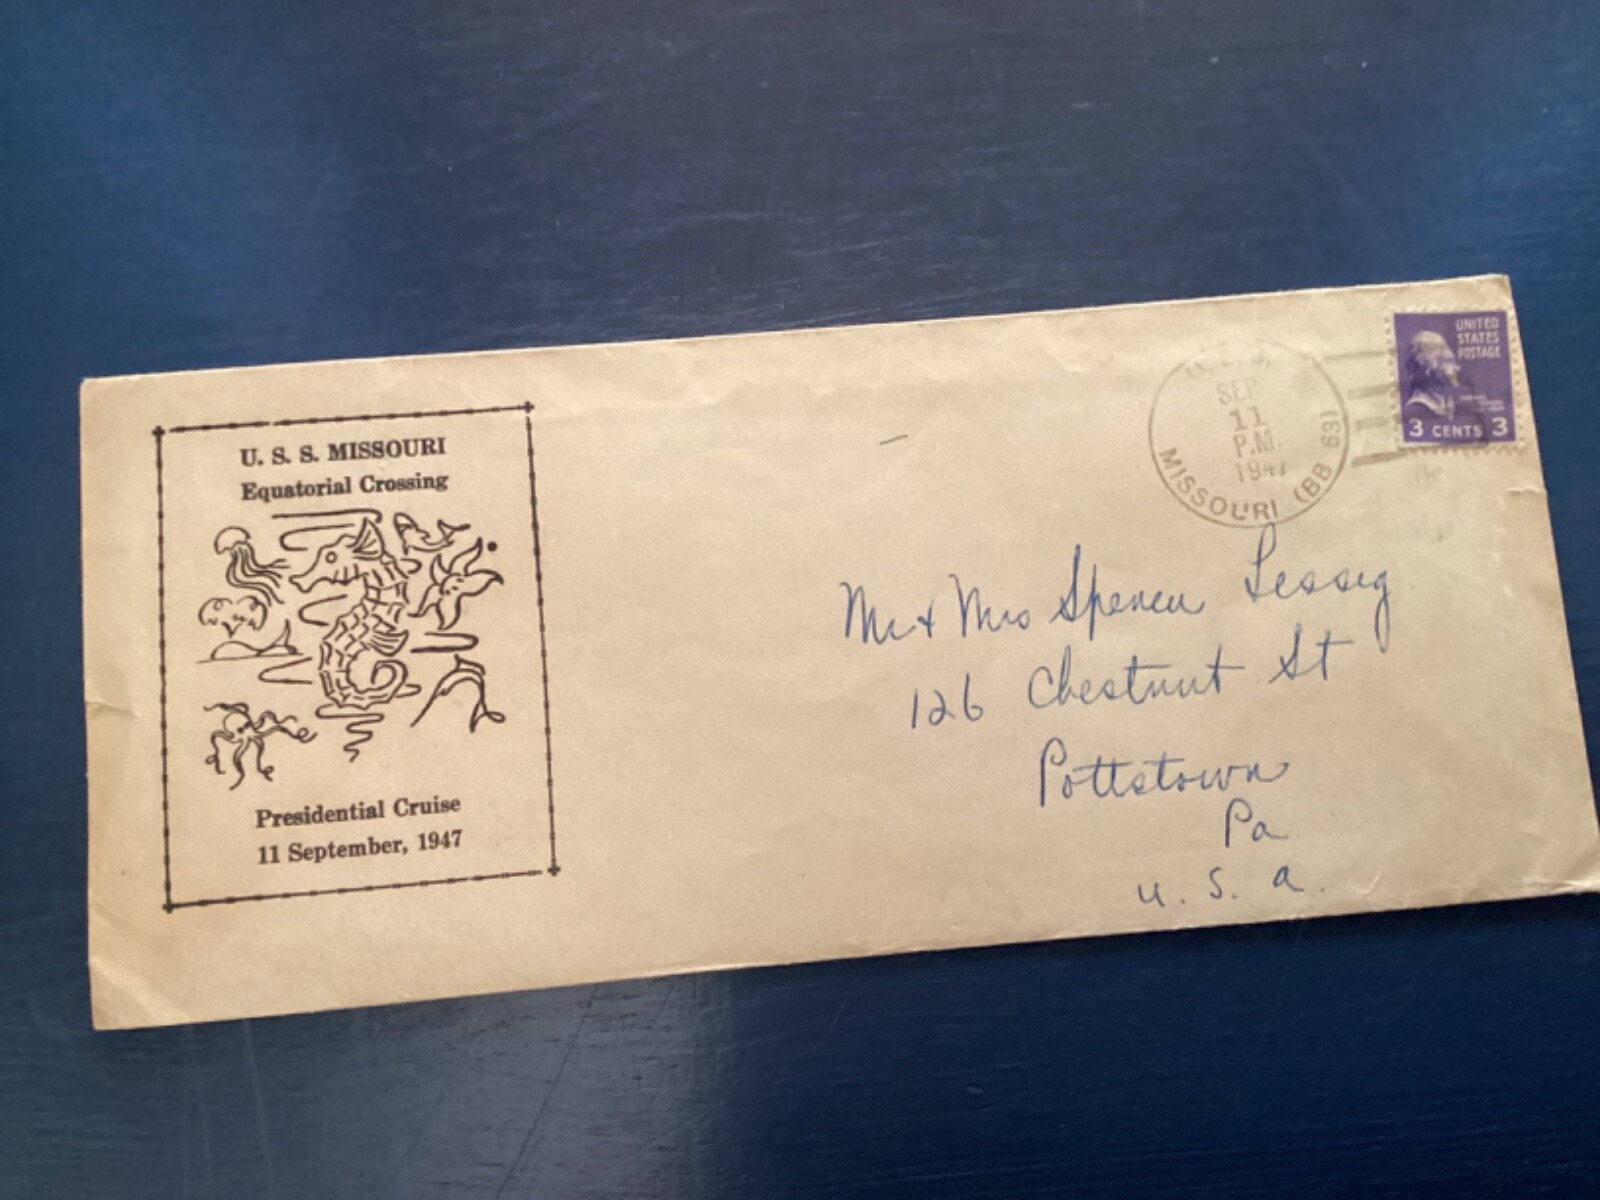 U. S. S. MISSOURI
Equatorial Crossing
Presidential Cruise
11 September, 1947
U.S.S.
SEP
11
P.M.
1947
MISSOURI (BB 63)
UNITED
STATES
POSTAGE
3 CENTS 3
Mr + Mrs Spencer Lessig
126 Chestnut St
Pottstown
Pa
U. S. A.